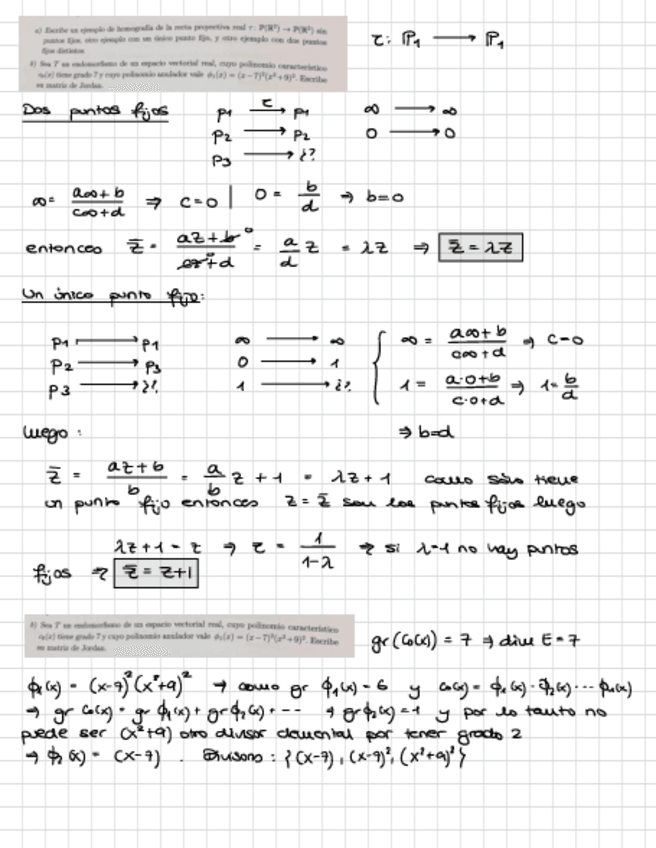 a) Escribe un ejemplo de homografía de la recta proyectiva real τ : P(R²) → P(R²) sin
puntos fijos, otro ejemplo con un único punto fijo, y otro ejemplo con dos puntos
fijos distintos.
b) Sea T un endomorfismo de un espacio vectorial real, cuyo polinomio característico
c₀(x) tiene grado 7 y cuyo polinomio anulador vale φ₁(x) = (x−7)²(x²+9)². Escribe
su matriz de Jordan.
τ: ℙ₁ ⟶ ℙ₁
Dos puntos fijos
p₁ →τ p₁   ∞ → ∞
p₂ → p₂   0 → 0
p₃ → ¿?
∞ = (a∞+b)/(c∞+d) ⇒ c=0 | 0 = b/d ⇒ b=0
entonces z̄ = (az+b)/(cz+d) = a/d z = λz ⇒ z̄ = λz
Un único punto fijo:
p₁ → p₁   ∞ → ∞   ∞ = (a∞+b)/(c∞+d) ⇒ c=0
p₂ → p₃   0 → 1
p₃ → ¿?   1 → ¿?   1 = (a·0+b)/(c·0+d) ⇒ 1 = b/d
luego :   ⇒ b=d
z̄ = (az+b)/b = a/b z + 1 = λz+1 como sólo tiene
un punto fijo entonces z = z̄ son los puntos fijos luego
λz+1 = z ⇒ z = 1/(1-λ) ⇒ si λ=1 no hay puntos
fijos ⇒ z̄ = z+1
b) Sea T un endomorfismo de un espacio vectorial real, cuyo polinomio característico
c₀(x) tiene grado 7 y cuyo polinomio anulador vale φ₁(x) = (x−7)²(x²+9)². Escribe
su matriz de Jordan.
gr(C₀(x)) = 7 ⇒ dim E = 7
φ₁(x) = (x-7)²(x²+9)² → como gr φ₁(x) = 6 y C₀(x) = φ₁(x)·φ₂(x)···φₙ(x)
⇒ gr C₀(x) = gr φ₁(x) + gr φ₂(x) + --- ⇒ gr φ₂(x) = 1 y por lo tanto no
puede ser (x²+9) otro divisor elemental por tener grado 2
⇒ φ₂(x) = (x-7) . Divisores : {(x-7), (x-7)², (x²+9)²}